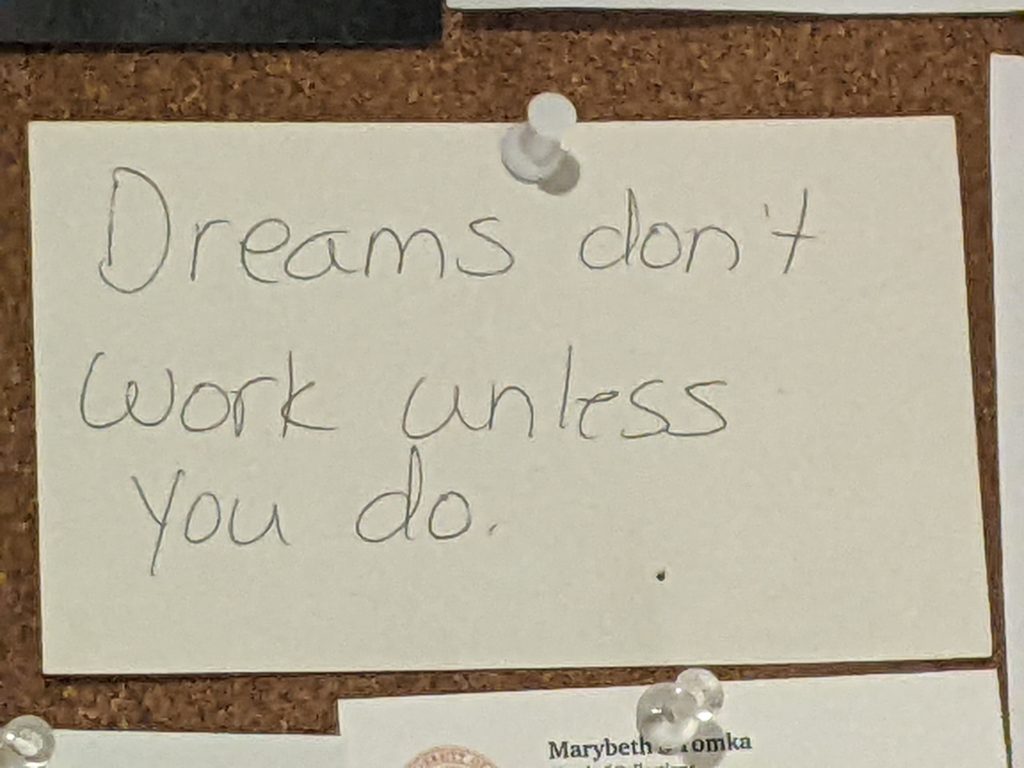 Dreams don't
work unless
you do.
Marybeth Tomka